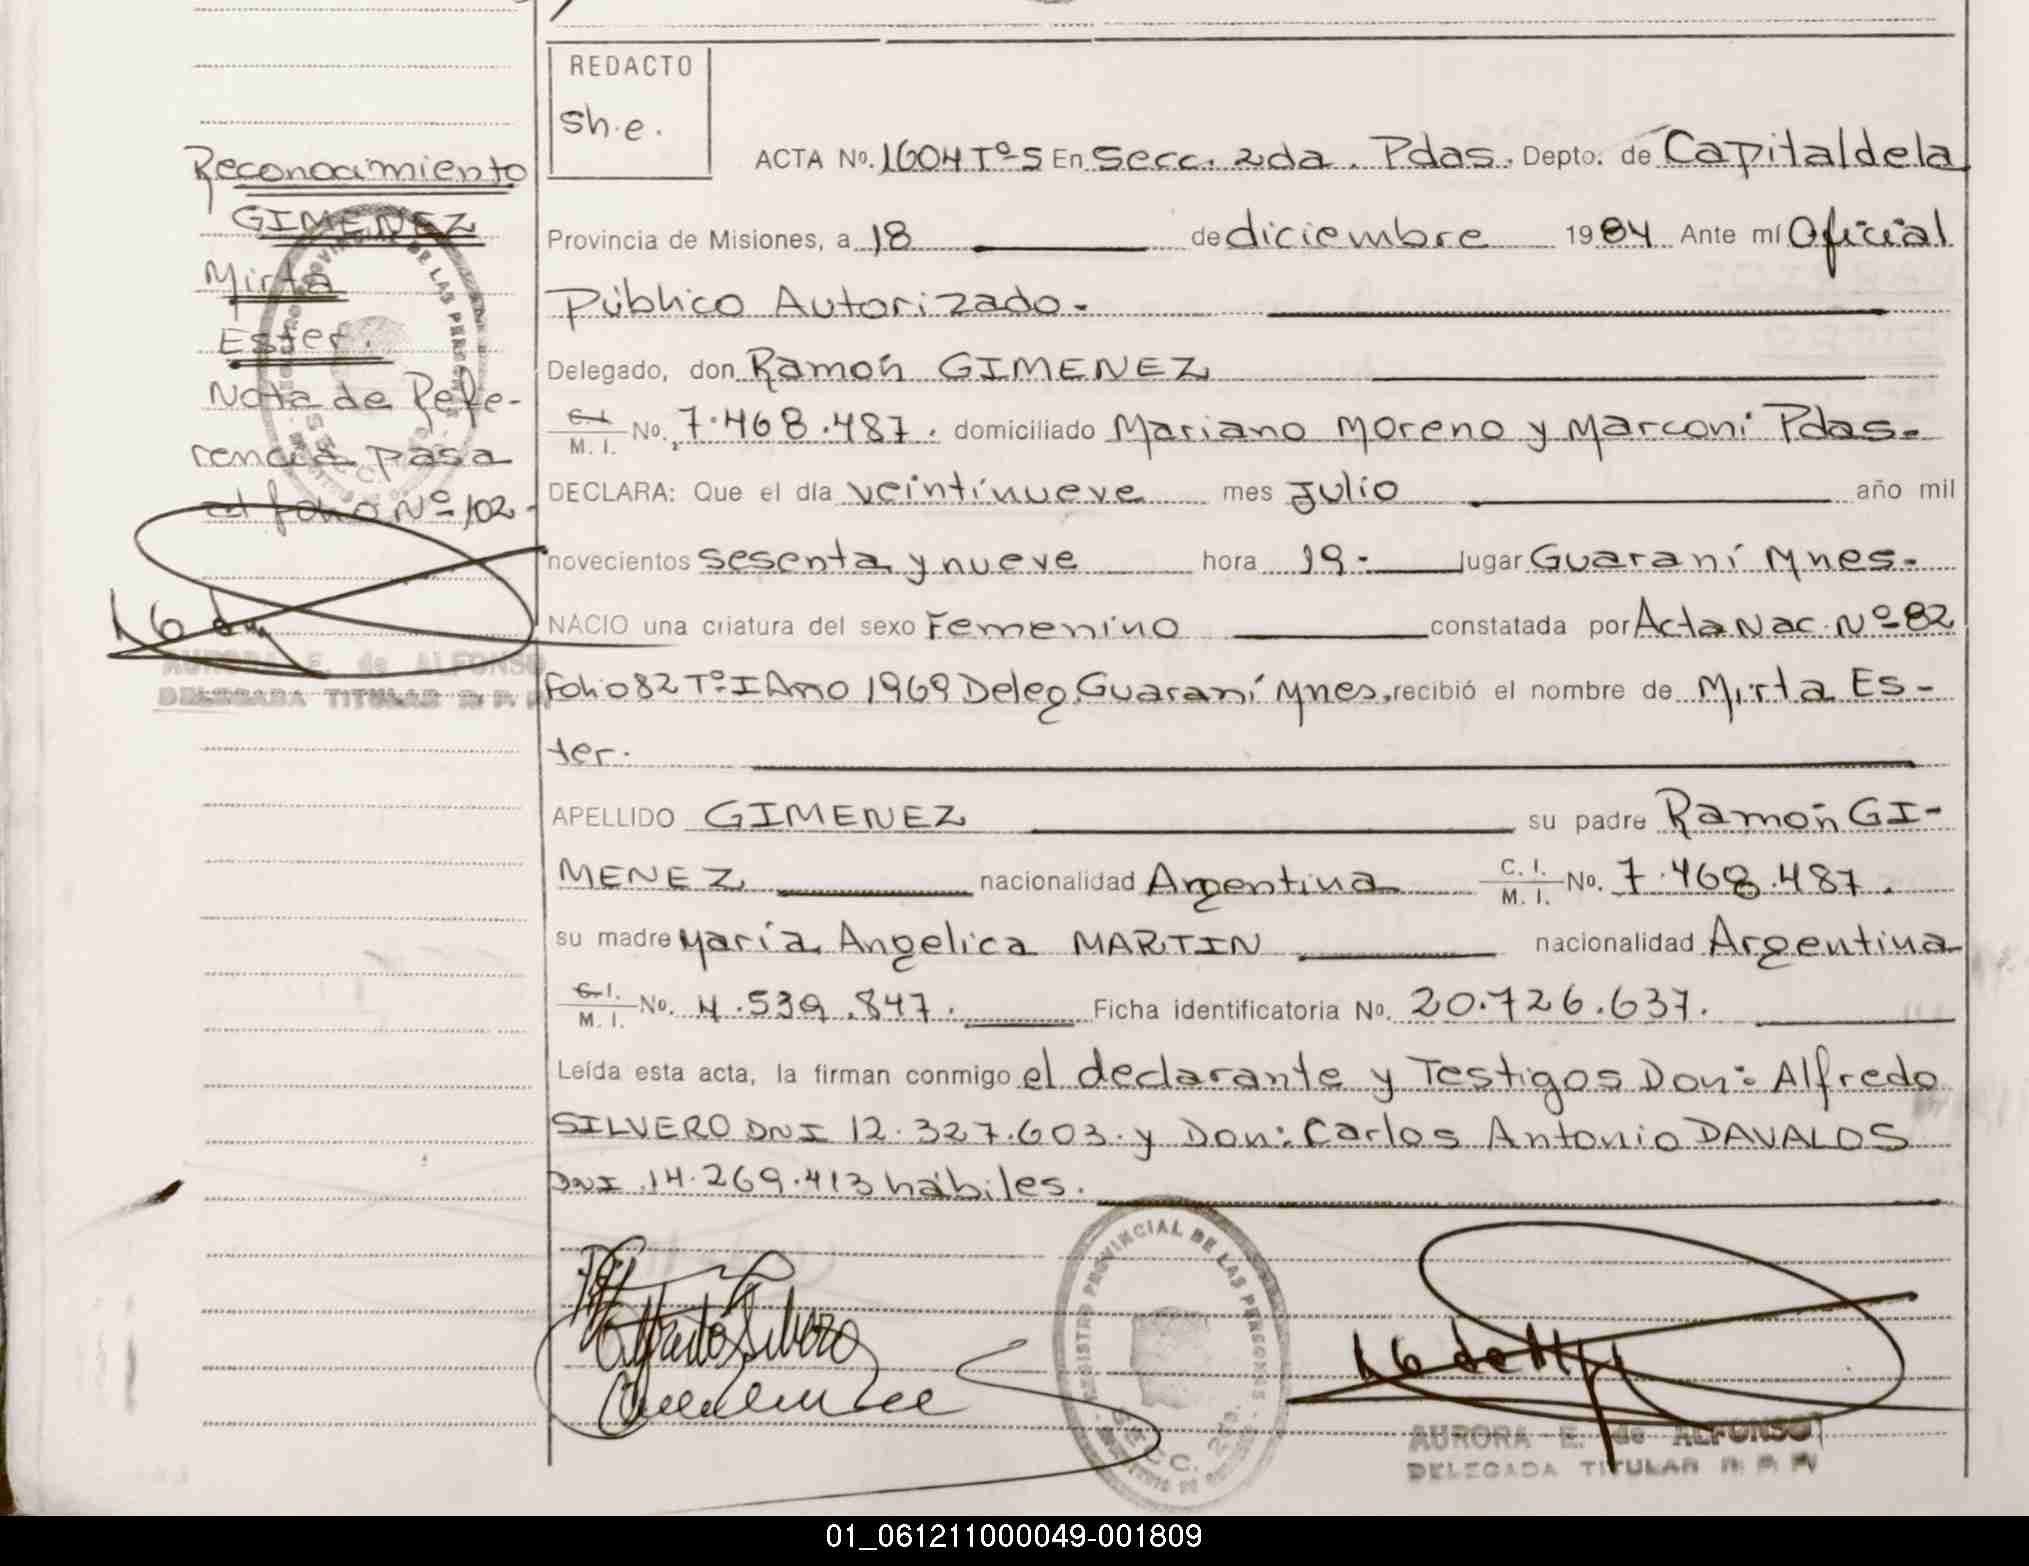 REDACTO
sh.e.
ACTA No. 1604 Tº-5 En Secc. 2da. Pdas. Depto. de Capital de la
Provincia de Misiones, a 18 de diciembre 1984 Ante mí Oficial
Público Autorizado.-
Delegado, don Ramón GIMENEZ
C.I. M. I. No. 7.468.487. domiciliado Mariano Moreno y Marconi Pdas.-
DECLARA: Que el día veintinueve mes Julio año mil
novecientos sesenta y nueve hora 19.- lugar Guaraní Mnes.-
NACIO una criatura del sexo Femenino constatada por Acta Nac. Nº 82
Folio 82 Tº I Año 1969 Deleg. Guaraní Mnes. recibió el nombre de Mirta Es-
ter.
APELLIDO GIMENEZ su padre Ramón GI-
MENEZ nacionalidad Argentina C. I. M. I. No. 7.468.487.
su madre María Angelica MARTIN nacionalidad Argentina
C.I. M. I. No. 4.539.847. Ficha identificatoria No. 20.726.637.
Leída esta acta, la firman conmigo el declarante y Testigos Don: Alfredo
SILVERO DNI 12.327.603. y Don: Carlos Antonio DAVALOS
DNI 14.269.413 hábiles.
Reconocimiento
GIMENEZ
Mirta
Ester.
Nota de Refe-
rencia pasa
al folio Nº 102-
AURORA E. de ALFONSO
DELEGADA TITULAR R. P. P.
Alfredo Silvero
REGISTRO PROVINCIAL DE LAS PERSONAS
SECC. 2da.
AURORA E. de ALFONSO
DELEGADA TITULAR R. P. P.
01_061211000049-001809